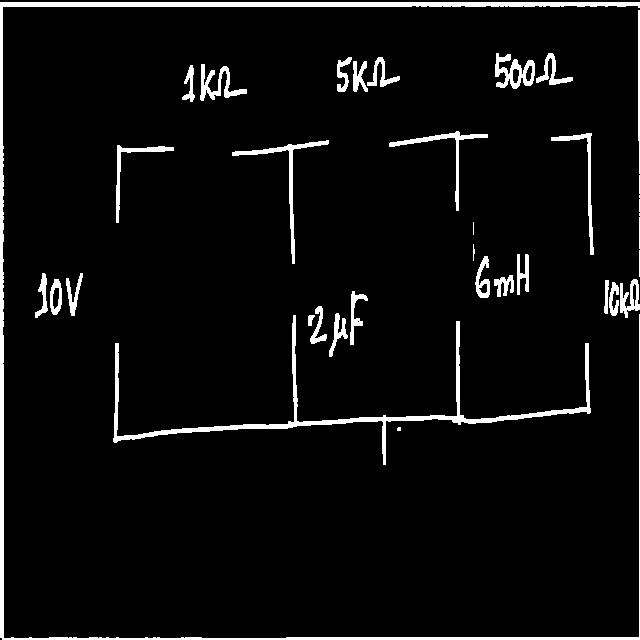 1KΩ 5KΩ 500Ω
10V 2μF 6mH 10kΩ